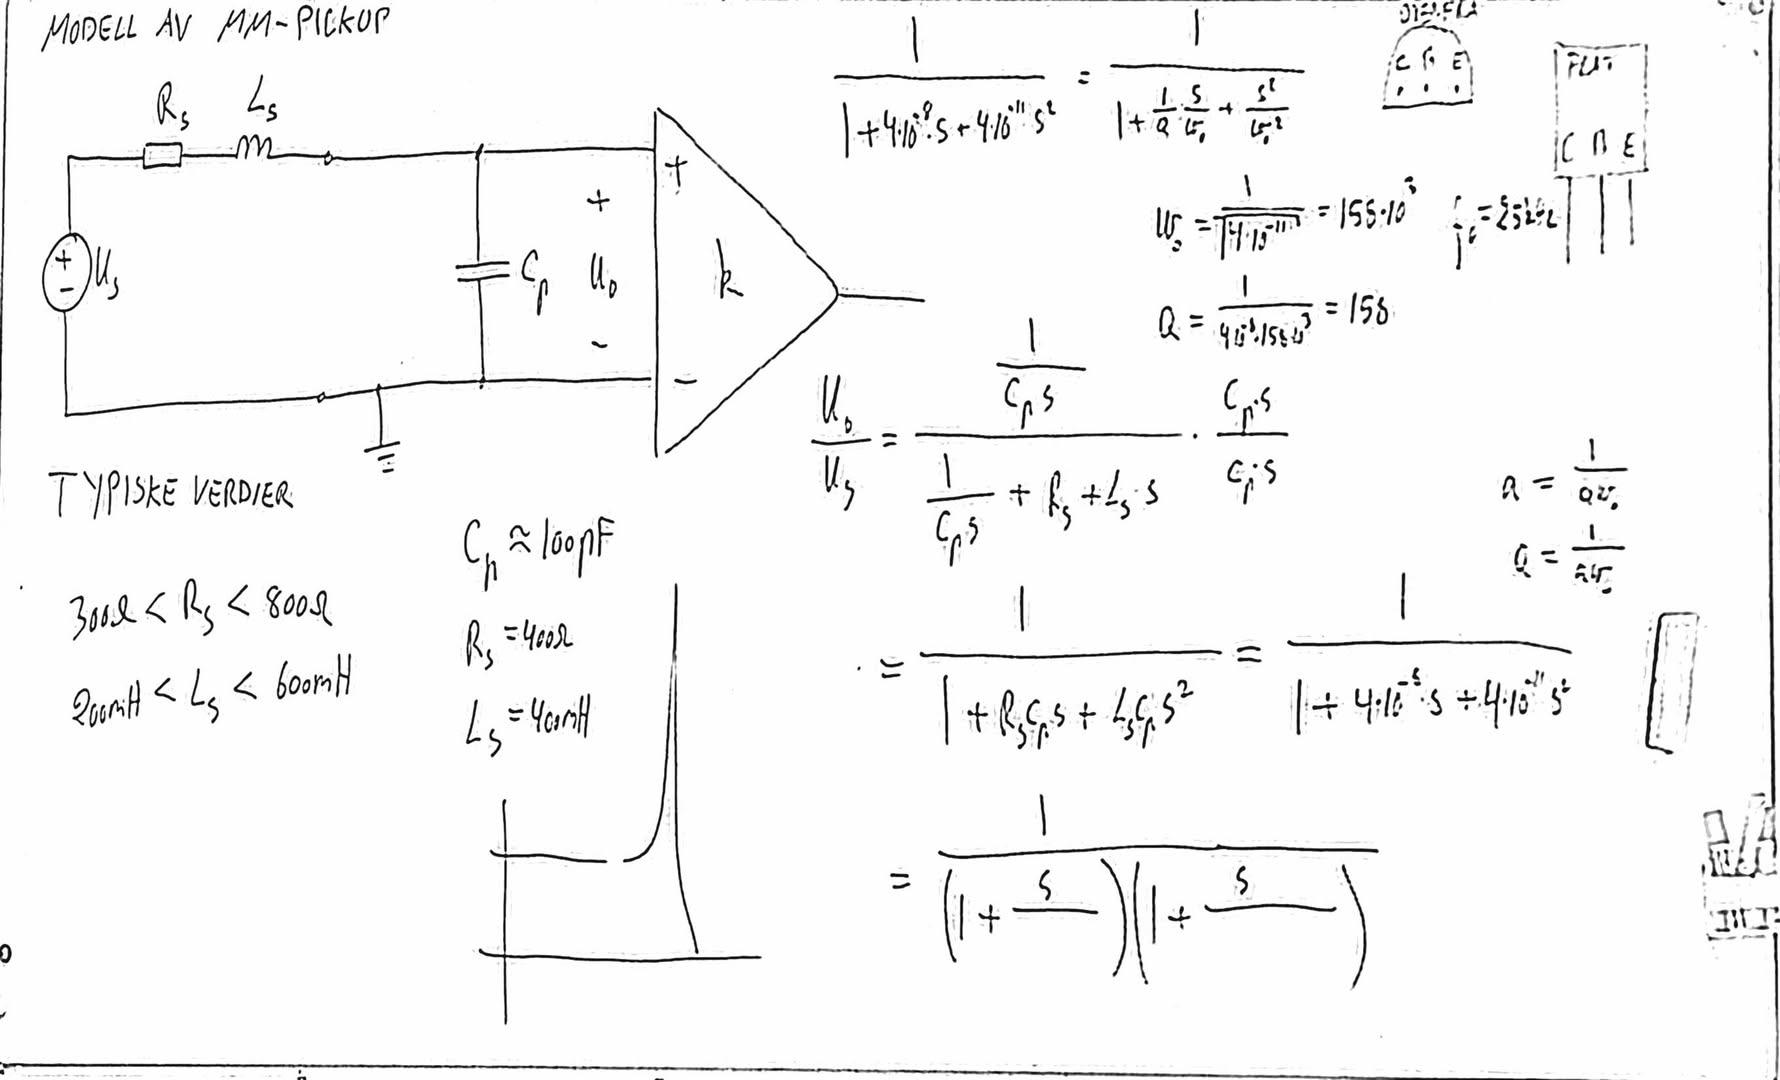 MODELL AV MM-PICKUP
R_s L_s
+
-
U_s
C_p
+
U_o
-
+
k
-
TYPISKE VERDIER
300Ω < R_s < 800Ω
200mH < L_s < 600mH
C_p ≈ 100pF
R_s = 400Ω
L_s = 400mH
1/(1+4·10^-8·s+4·10^-11 s^2) = 1/(1+1/Q·s/ω_0+s^2/ω_0^2)
ω_0 = 1/√(4·10^-11) = 158·10^3
Q = 1/(4·10^-8·158·10^3) = 158
U_o/U_s = (1/(C_p s))/(1/(C_p s) + R_s + L_s s) · (C_p·s)/(C_p·s)
= 1/(1+R_s C_p s + L_s C_p s^2) = 1/(1+4·10^-8·s+4·10^-11 s^2)
= 1/((1+s/ )(1+s/ ))
a = 1/(Qω_0)
Q = 1/(aω_0)
C B E
FLAT
C B E